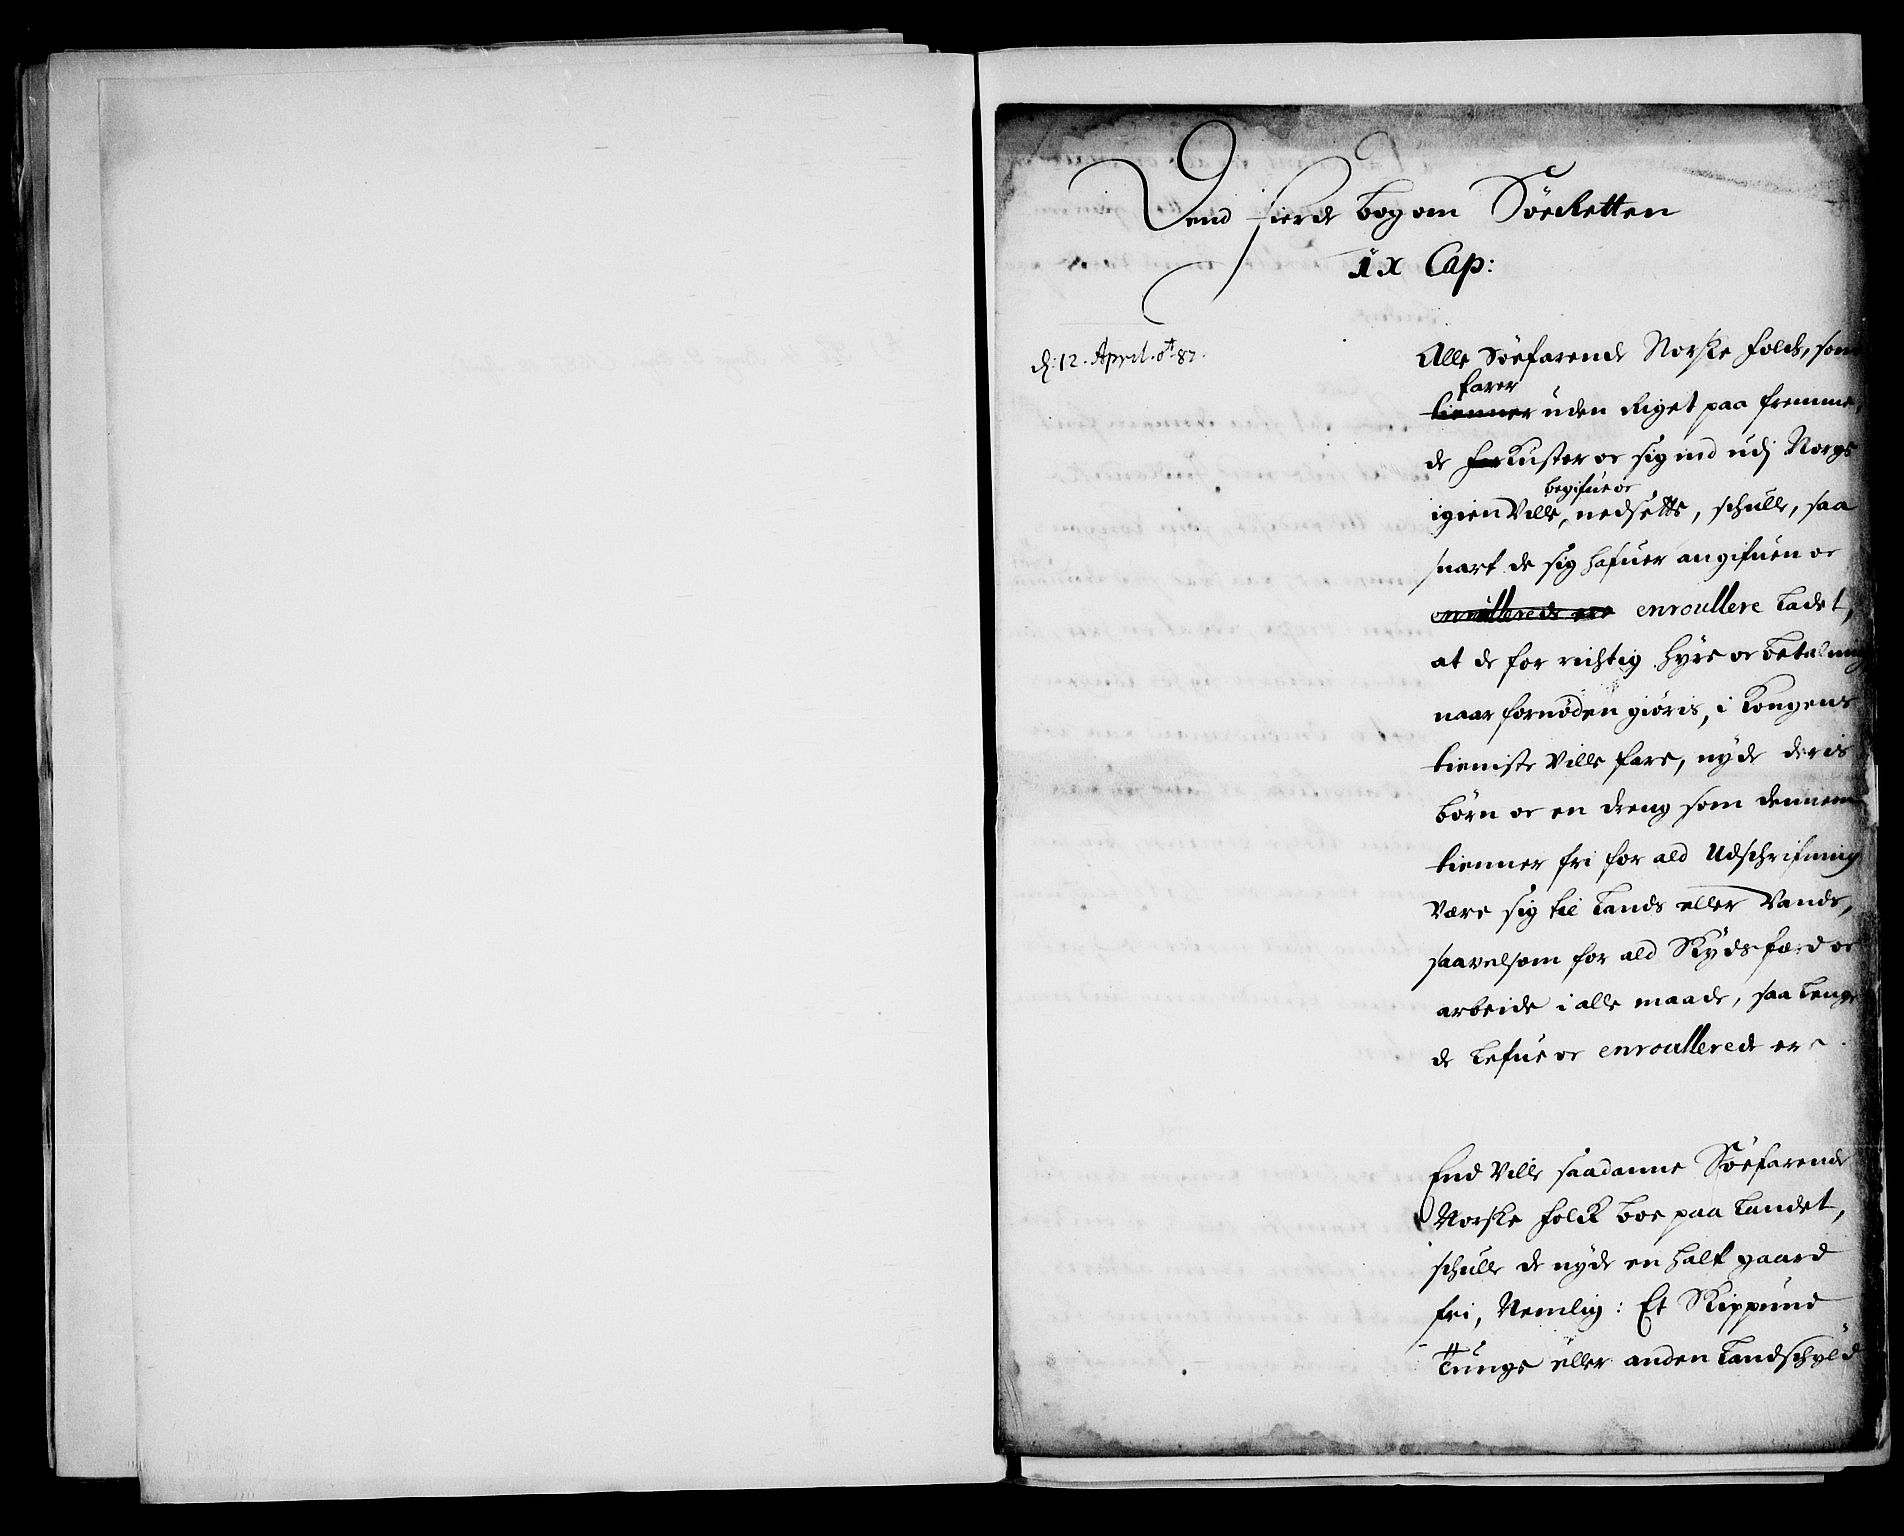 Dend fierde bog om Søeretten
IX Cap:
d: 12. April. Aº 87.
Alle Søefarende Norske folck, som
farer
tienner uden Riget paa fremme,
de for Kuster oc sig ind udj Norge
begifue oc
igien ville, nedsette, schulle, saa
snart de sig hafuer angifuen oc
enrullerede ere enroullere ladet,
at de for richtig hyre oc betalning
naar fornøden giøris, i Kongens
tieniste ville fare, nyde deris
børn oc en dreng som dennem
tienner fri for ald Udschrifning
være sig til Lands eller Vands,
saavelsom for ald Skydsferd oc
arbeide i alle maade, saa lenge
de lefue oc enroullerede ere.
End ville saadanne Søefarende
Norske folck boe paa landet,
schulle de nyde en half gaard
fri, Nemlig: Et Skippund
Tunge eller anden Landschyld